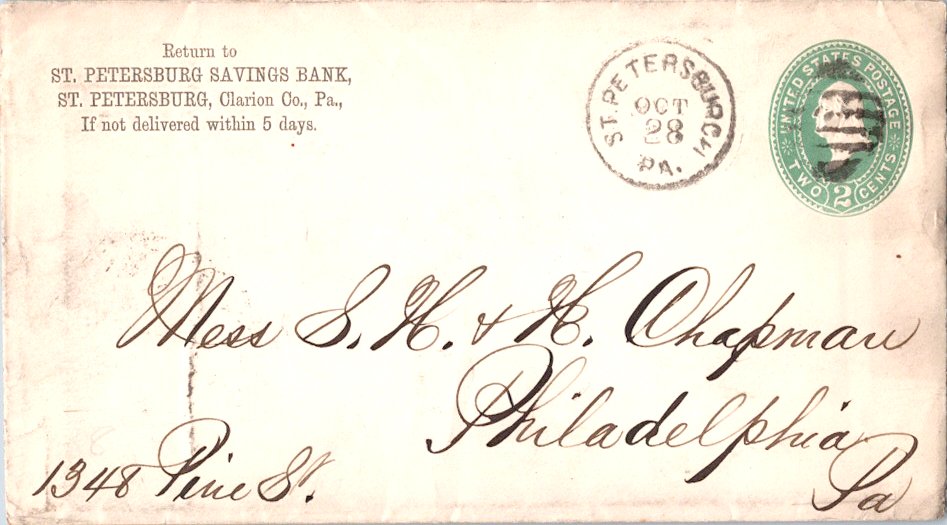 Return to
ST. PETERSBURG SAVINGS BANK,
ST. PETERSBURG, Clarion Co., Pa.,
If not delivered within 5 days.
ST. PETERSBURGH
OCT
28
PA.
UNITED STATES POSTAGE
TWO 2 CENTS
Mess S. H. & H. Chapman
Philadelphia
1348 Pine St. Pa